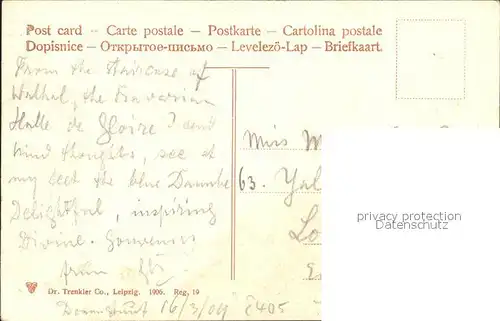 Post card – Carte postale – Postkarte – Cartolina postale
Dopisnice – Открытое-письмо – Levelezö-Lap – Briefkaart.
From the staircase of
Walhal, the Bavarian
Halle de Gloire I send
kind thoughts, see at
my feet the blue Danube
Delightful, inspiring
Divine. Souvenirs
from
Miss
63.
privacy protection
Datenschutz
Dr. Trenkler Co., Leipzig. 1906. Reg. 19
16/3/09 2405